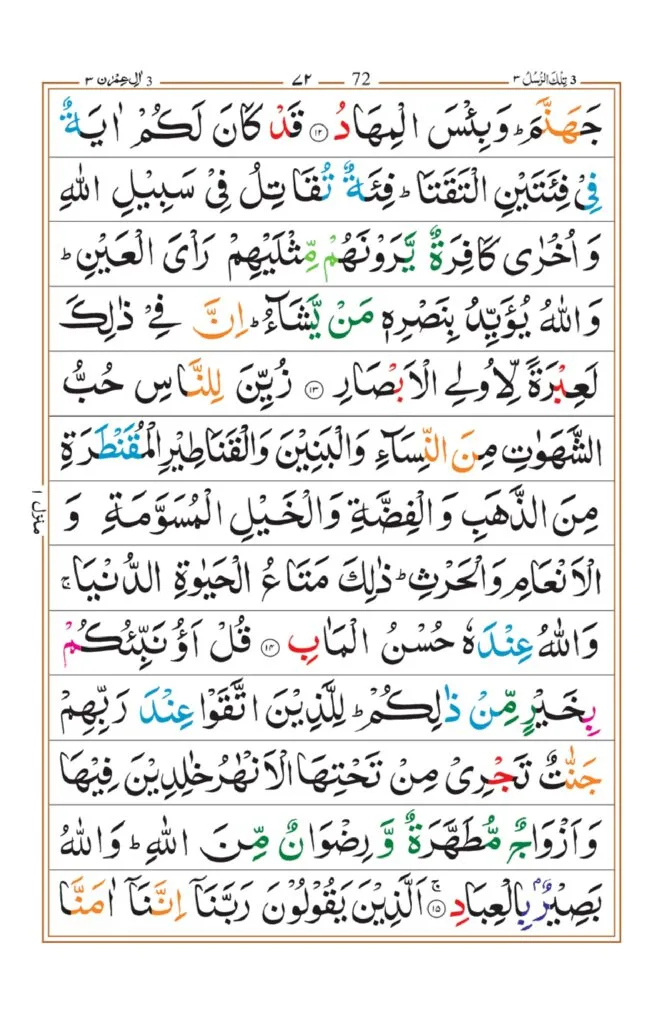 تِلْكَ الرُّسُلُ ٣ 3 72 ٧٢ اٰلِ عِمْرٰن ٣ 3
جَهَنَّمَ ؕ وَبِئْسَ الْمِهَادُ ۝۱۲ قَدْ كَانَ لَكُمْ اٰيَةٌ
فِىْ فِئَتَيْنِ الْتَقَتَا ؕ فِئَةٌ تُقَاتِلُ فِىْ سَبِيْلِ اللّٰهِ
وَ اُخْرٰى كَافِرَةٌ يَّرَوْنَهُمْ مِّثْلَيْهِمْ رَاْىَ الْعَيْنِ ؕ
وَاللّٰهُ يُؤَيِّدُ بِنَصْرِهٖ مَنْ يَّشَآءُ ؕ اِنَّ فِىْ ذٰلِكَ
لَعِبْرَةً لِّاُولِى الْاَبْصَارِ ۝۱۳ زُيِّنَ لِلنَّاسِ حُبُّ
الشَّهَوٰتِ مِنَ النِّسَآءِ وَالْبَنِيْنَ وَالْقَنَاطِيْرِ الْمُقَنْطَرَةِ
مِنَ الذَّهَبِ وَالْفِضَّةِ وَالْخَيْلِ الْمُسَوَّمَةِ وَ
الْاَنْعَامِ وَالْحَرْثِ ؕ ذٰلِكَ مَتَاعُ الْحَيٰوةِ الدُّنْيَا ۚ
وَاللّٰهُ عِنْدَهٗ حُسْنُ الْمَاٰبِ ۝۱۴ قُلْ اَؤُنَبِّئُكُمْ
بِخَيْرٍ مِّنْ ذٰلِكُمْ ؕ لِلَّذِيْنَ اتَّقَوْا عِنْدَ رَبِّهِمْ
جَنّٰتٌ تَجْرِىْ مِنْ تَحْتِهَا الْاَنْهٰرُ خٰلِدِيْنَ فِيْهَا
وَاَزْوَاجٌ مُّطَهَّرَةٌ وَّ رِضْوَانٌ مِّنَ اللّٰهِ ؕ وَاللّٰهُ
بَصِيْرٌۢ بِالْعِبَادِ ۝۱۵ ۚ اَلَّذِيْنَ يَقُوْلُوْنَ رَبَّنَاۤ اِنَّنَاۤ اٰمَنَّا
منزل ۱